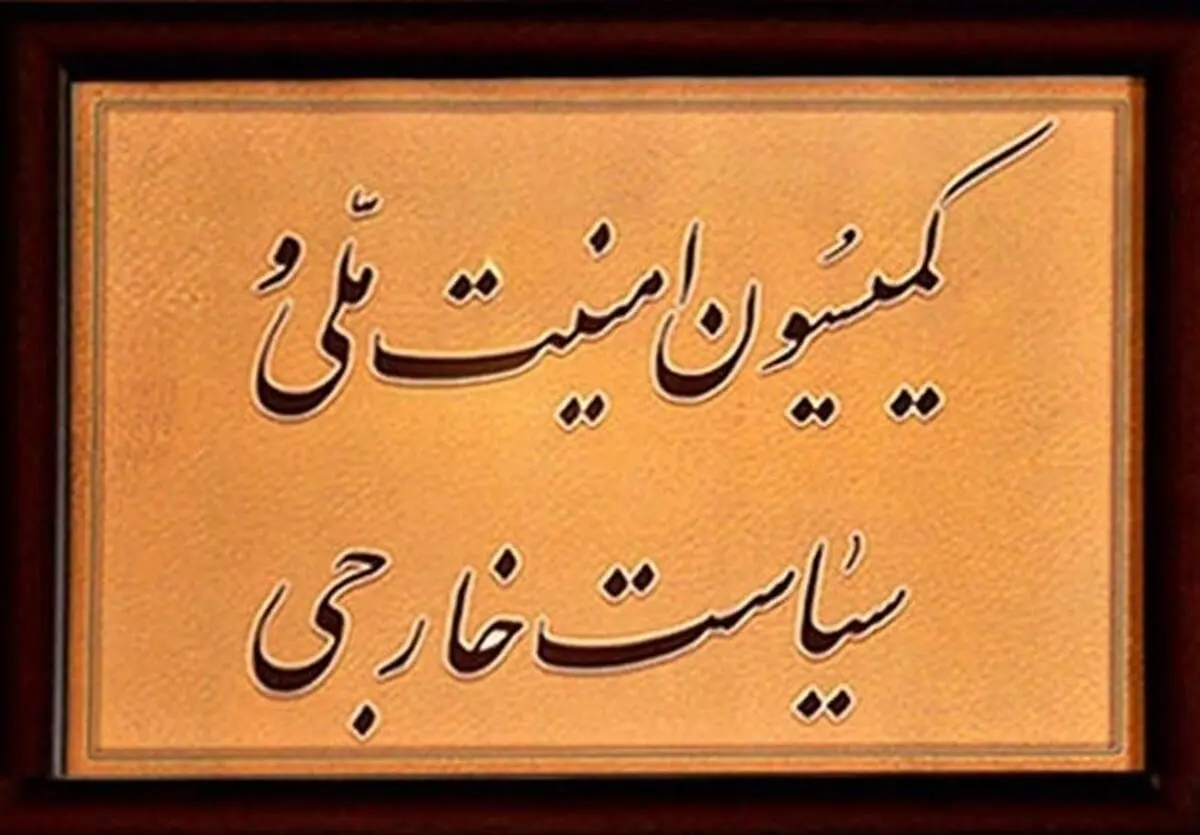 کمیسُیون امنیت ملّی وُ
سیُاست خارجی